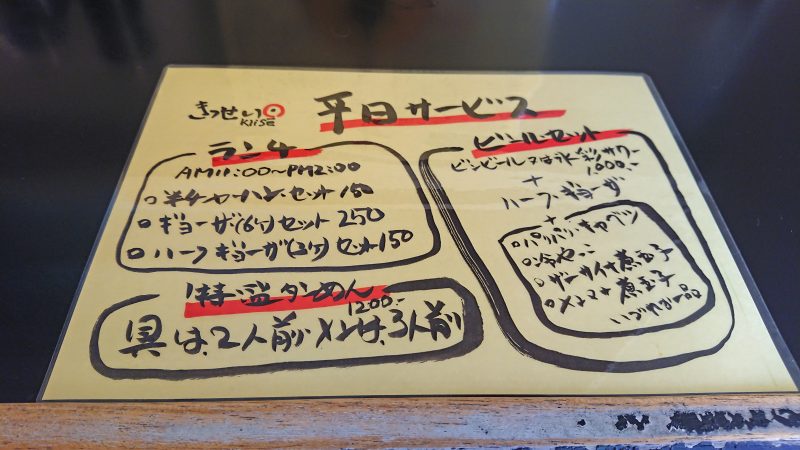 きっせい
KiiSe
平日サービス
ランチ
AM11:00~PM2:00
半チャーハンセット 150
ギョーザ(6ケ)セット 250
ハーフギョーザ(3ケ)セット 150
特盛タンめん
1200.-
具は、2人前 メンは、3人前
ビールセット
ビンビール又は
サワー
1000.-
+
ハーフギョーザ
+
パリパリキャベツ
冷やっこ
ザーサイ+煮玉子
メンマ+煮玉子
いづれか一品